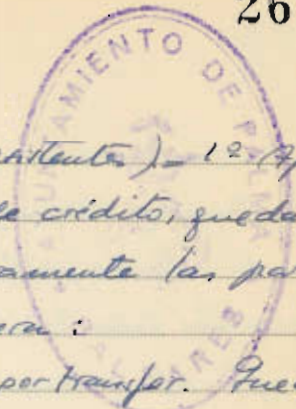 26
AYUNTAMIENTO DE PALMA
BALEARES
de crédito, queda
amente las par
por transfer. Que